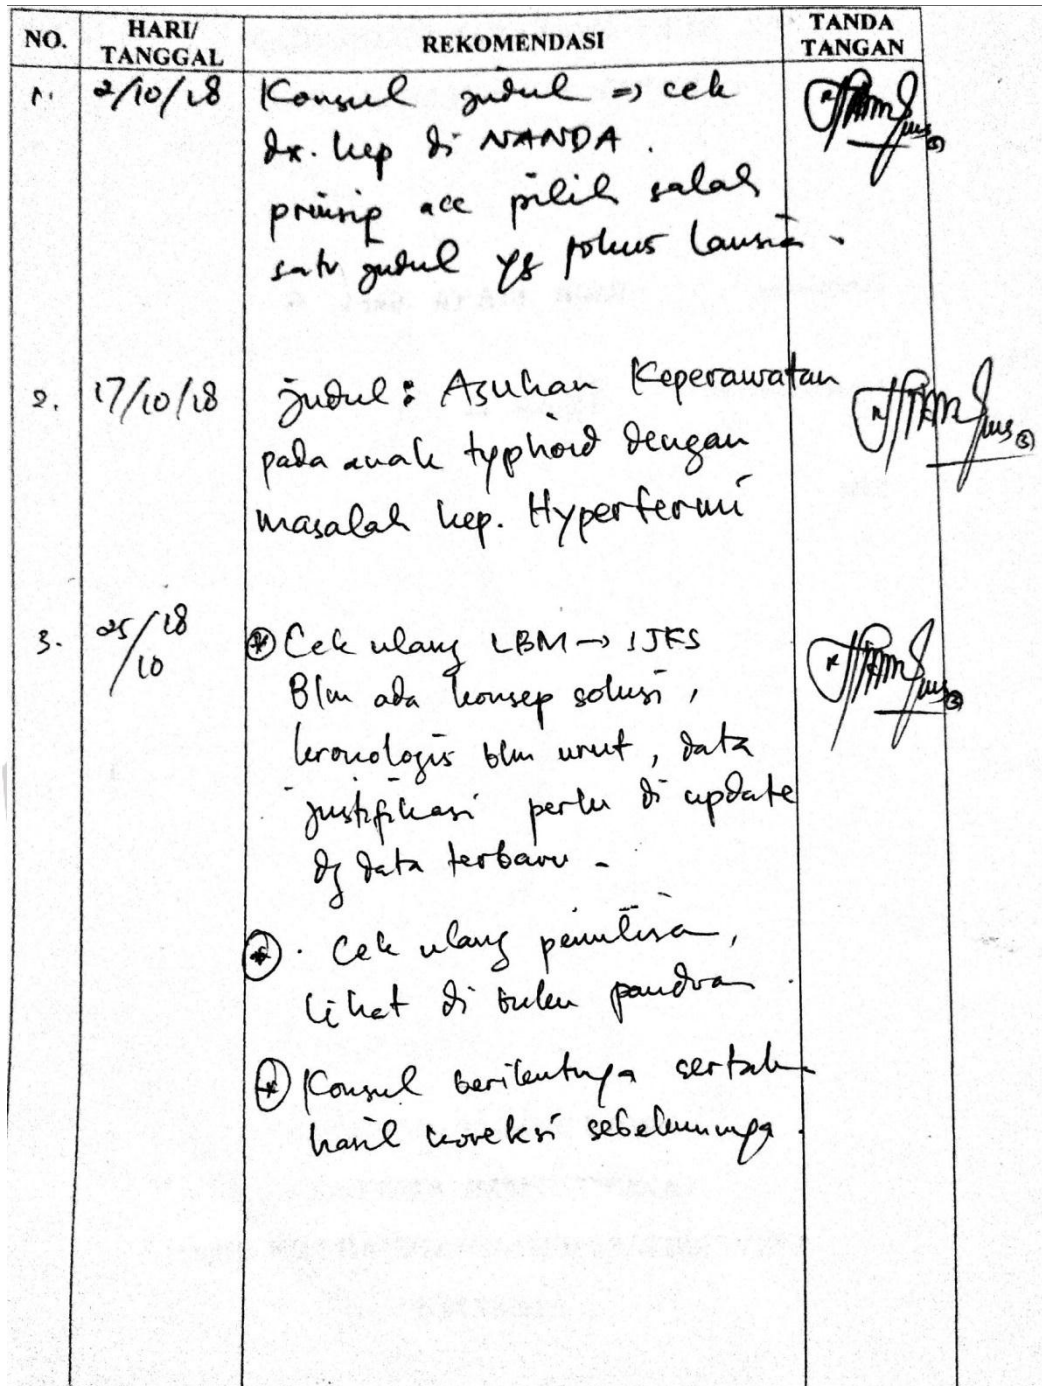 NO. HARI/ TANGGAL REKOMENDASI TANDA TANGAN
1. 2/10/18 Konsul judul => cek
dx. kep di NANDA.
prinsip acc pilih salah
satu judul yg fokus Lansia.
2. 17/10/18 judul: Asuhan Keperawatan
pada anak typhoid dengan
masalah kep. Hyperfermi
3. 25/18
/10
Cek ulang LBM → IJKS
Blm ada konsep solusi,
kronologis blm urut, data
justifikasi perlu di update
dg data terbaru -
. Cek ulang penulisa,
lihat di buku panduan.
Konsul berikutnya
hasil koreksi sebelumnya.